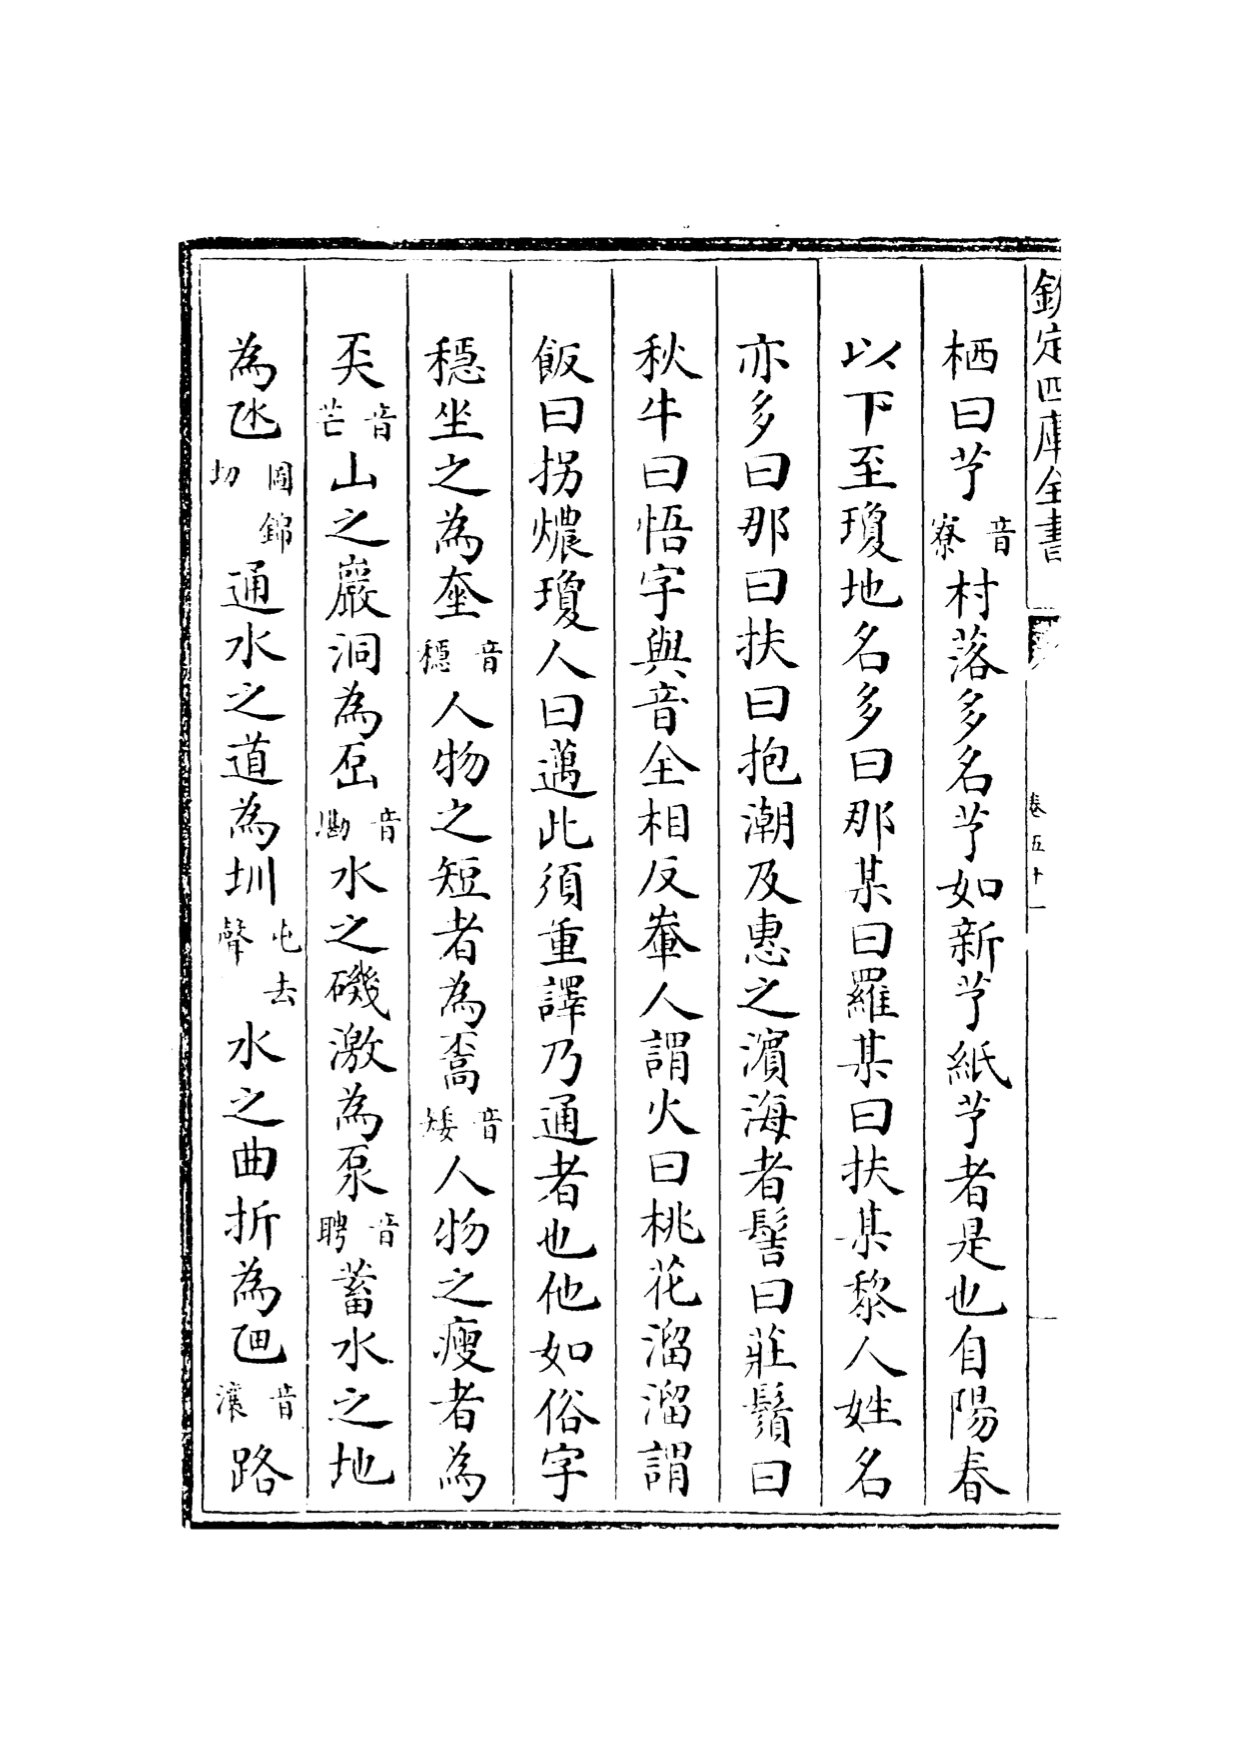 欽定四庫全書
卷五十一
栖曰艼音寮村落多名艼如新艼紙艼者是也自陽春
以下至瓊地名多曰那某曰羅某曰扶某黎人姓名
亦多曰那曰扶曰抱潮及惠之濵海者髻曰莊鬚曰
秋牛曰悟字與音全相反輋人謂火曰桃花溜溜謂
飯曰拐燶瓊人曰邁此須重譯乃通者也他如俗字
穩坐之為音穩人物之短者為音矮人物之瘦者為
奀音芒山之巖洞為音磡水之磯激為泵音聘蓄水之地
為氹圖錦切通水之道為圳屯去聲水之曲折為乪音瀼路